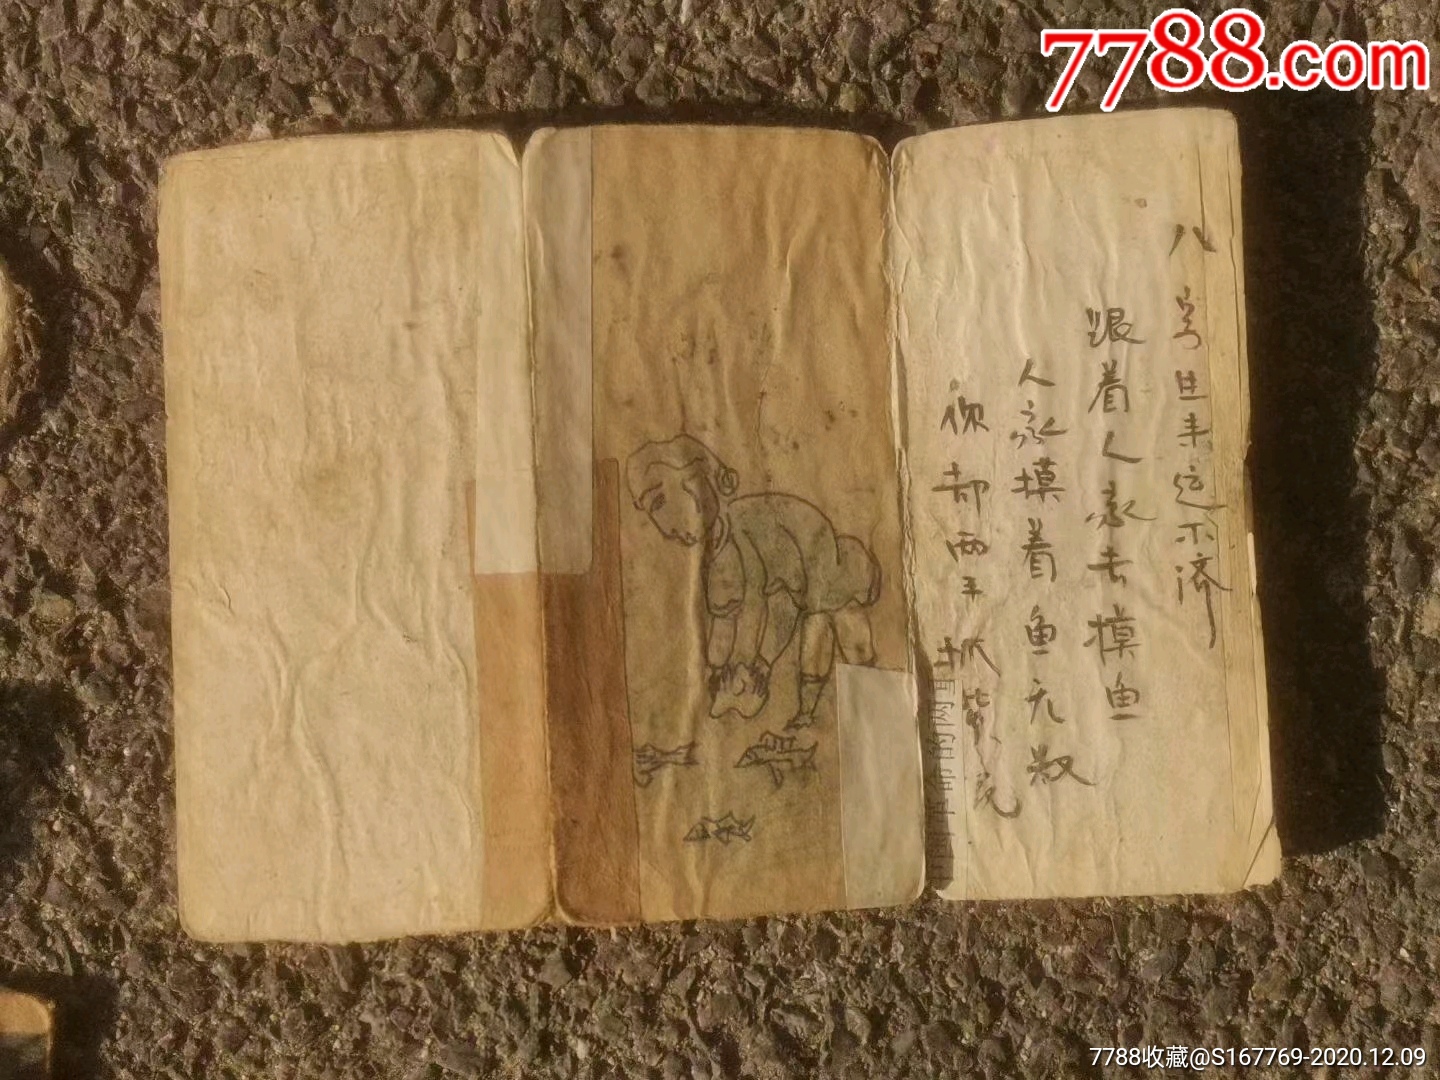 7788.com
八字生来运不济
跟着人家去摸鱼
人家摸着鱼无数
你却两手抓
7788收藏@S167769-2020.12.09